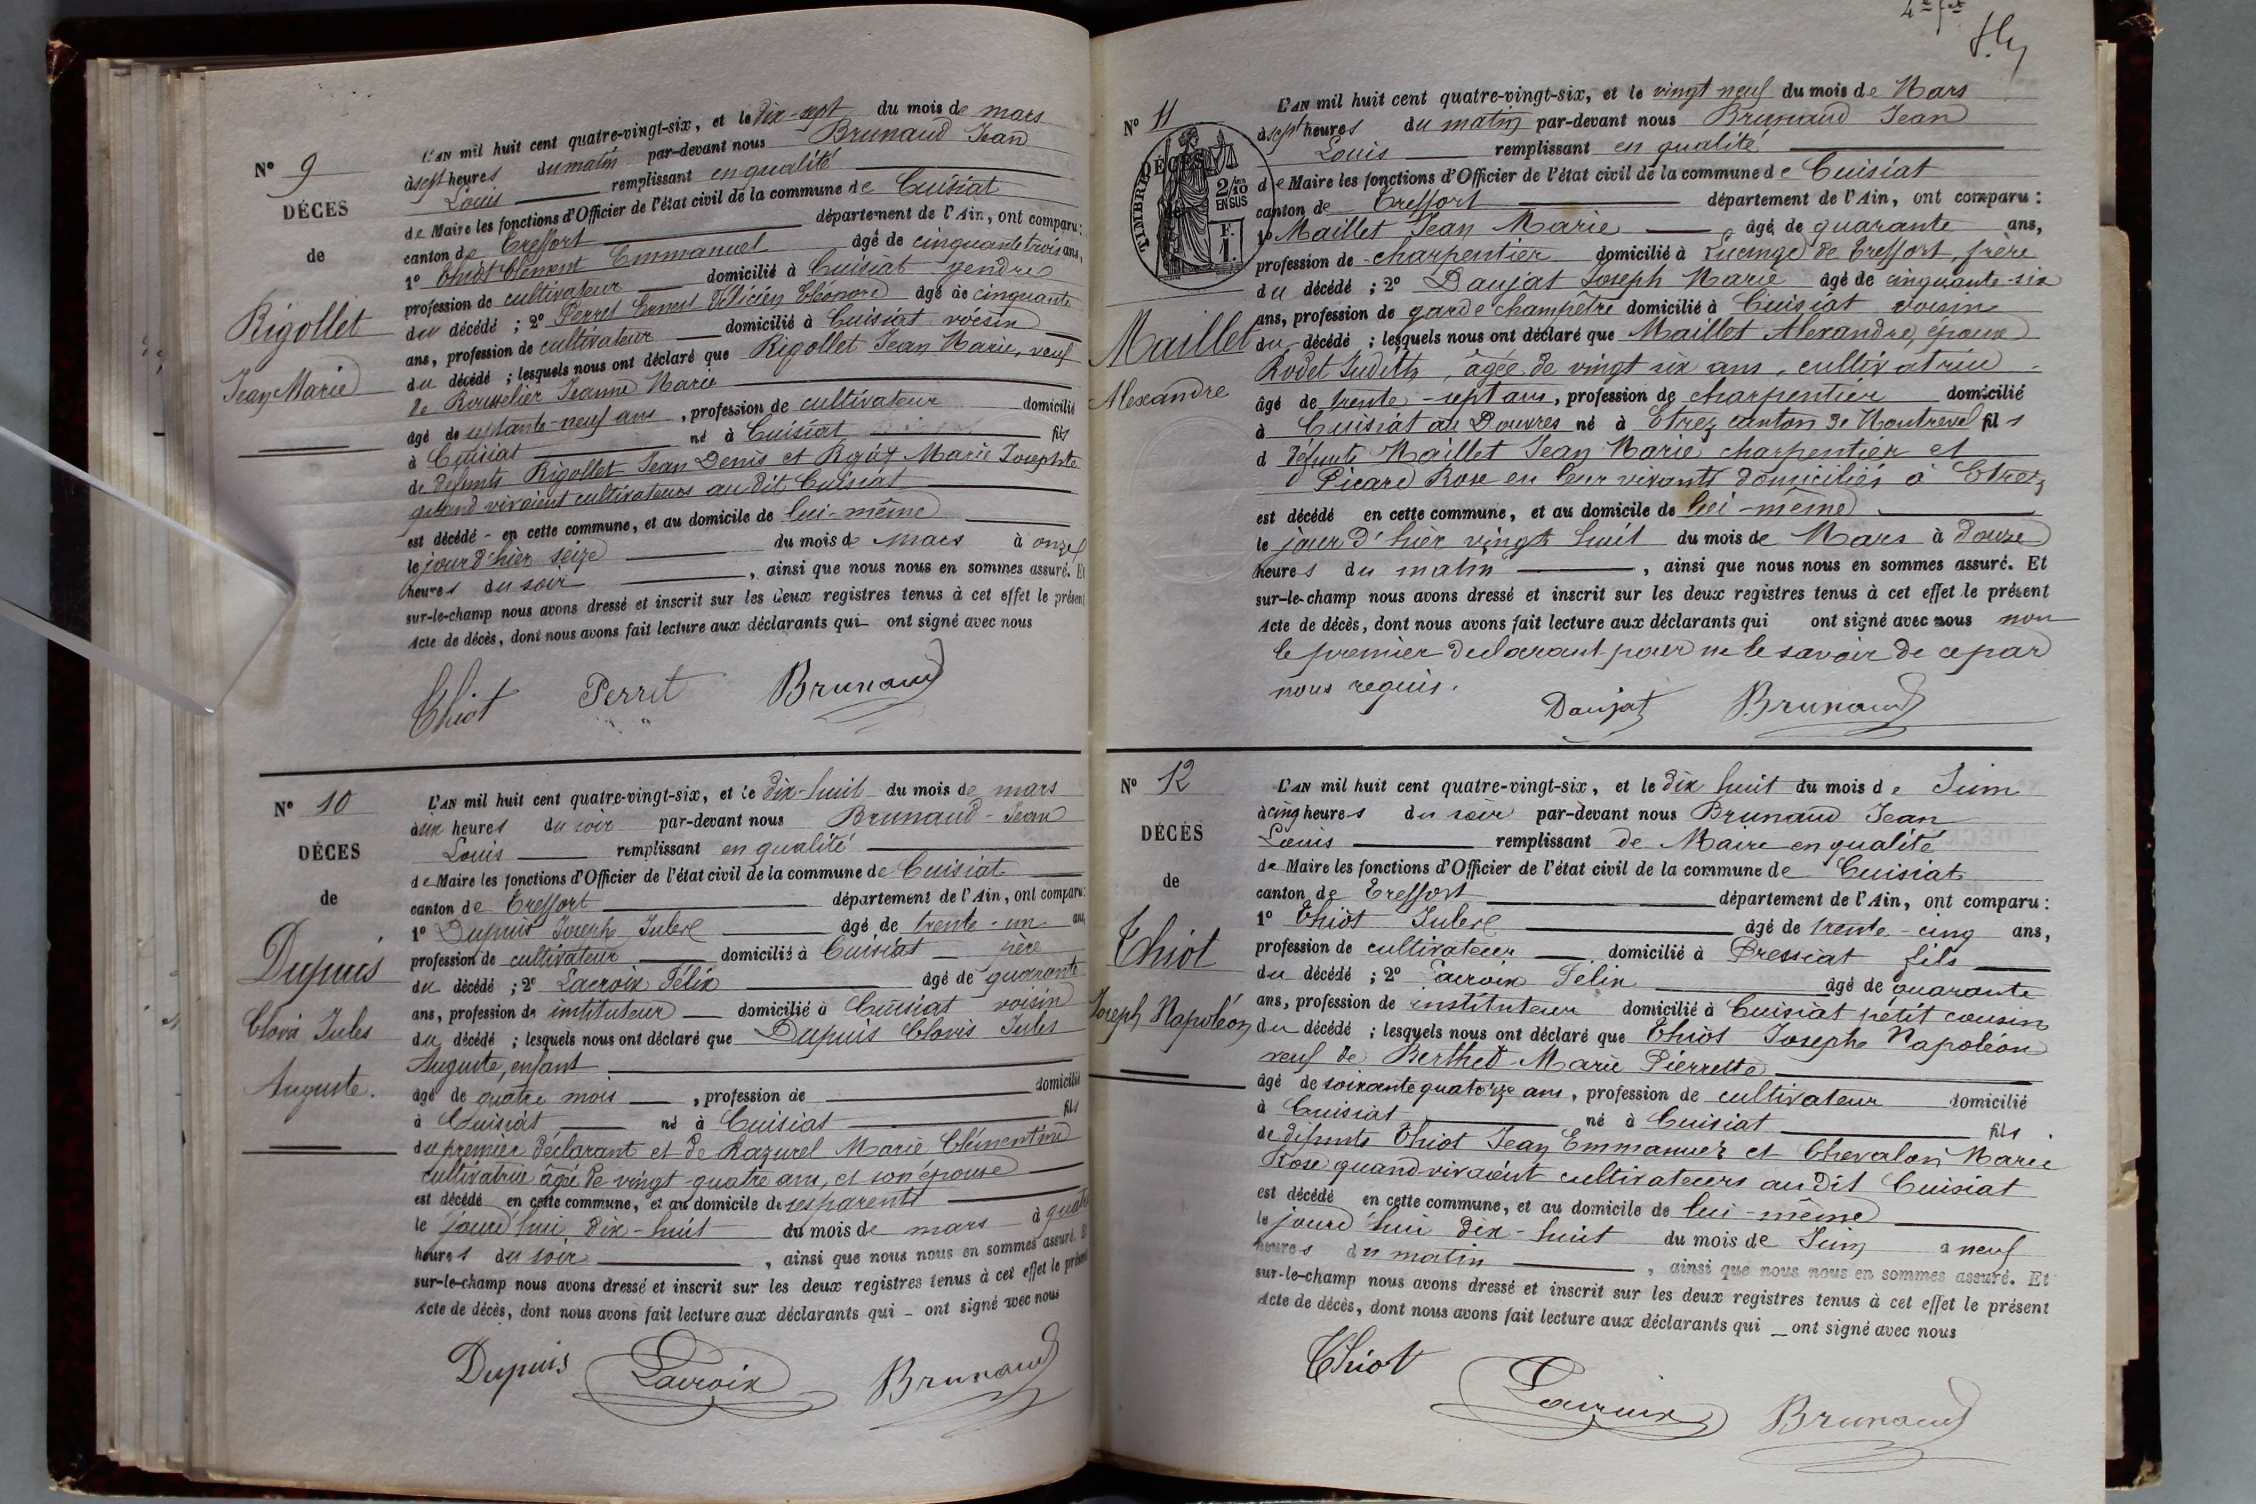 N° 9
DÉCES
de
Rigollet
Jean Marie
L'AN mil huit cent quatre-vingt-six, et le dix-sept du mois de mars
à sept heures du matin par-devant nous Brunaud Jean
Louis remplissant en qualité
de Maire les fonctions d'Officier de l'état civil de la commune de Cuisiat
canton de Treffort département de l'Ain, ont comparu:
1° Thiot Clément Emmanuel âgé de cinquante trois ans,
profession de cultivateur domicilié à Cuisiat gendre
du décédé ; 2° Perret Ernest Félicien Eléonore âgé de cinquante
ans, profession de cultivateur domicilié à Cuisiat voisin
du décédé ; lesquels nous ont déclaré que Rigollet Jean Marie, veuf
de Rousselier Jeanne Marie
âgé de septante-neuf ans, profession de cultivateur domicilié
à Cuisiat né à Cuisiat fils
de défunts Rigollet Jean Denis et Marie Josephte
quand vivaient cultivateurs au dit Cuisiat
est décédé - en cette commune, et au domicile de lui-même
le jour d'hier seize du mois de mars à onze
heures du soir, ainsi que nous nous en sommes assuré. Et
sur-le-champ nous avons dressé et inscrit sur les deux registres tenus à cet effet le présent
Acte de décès, dont nous avons fait lecture aux déclarants qui ont signé avec nous
Thiot Perret Brunaud
N° 10
DÉCES
de
Dupuis
Clovis Jules
Auguste.
L'AN mil huit cent quatre-vingt-six, et le dix-huit du mois de mars
à six heures du soir par-devant nous Brunaud Jean
Louis remplissant en qualité
de Maire les fonctions d'Officier de l'état civil de la commune de Cuisiat
canton de Treffort département de l'Ain, ont comparu:
1° Dupuis Joseph Jules âgé de trente-un ans,
profession de cultivateur domicilié à Cuisiat père
du décédé ; 2° Lacroix Félix âgé de quarante
ans, profession de instituteur domicilié à Cuisiat voisin
du décédé ; lesquels nous ont déclaré que Dupuis Clovis Jules
Auguste, enfant
âgé de quatre mois, profession de domicilié
à Cuisiat né à Cuisiat fils
du premier déclarant et de Razurel Marie Clémentine
cultivatrice âgée de vingt-quatre ans, et son épouse
est décédé en cette commune, et au domicile de ses parents
le jourd'hui dix-huit du mois de mars à quatre
heures du soir, ainsi que nous nous en sommes assuré. Et
sur-le-champ nous avons dressé et inscrit sur les deux registres tenus à cet effet le présent
Acte de décès, dont nous avons fait lecture aux déclarants qui - ont signé avec nous
Dupuis Lacroix Brunaud
N° 11
TIMBRE
2/10 EN SUS
F. 1.
DÉCÈS
Maillet
Alexandre
L'AN mil huit cent quatre-vingt-six, et le vingt neuf du mois de Mars
à sept heures du matin par-devant nous Brunaud Jean
Louis remplissant en qualité
de Maire les fonctions d'Officier de l'état civil de la commune de Cuisiat
canton de Treffort département de l'Ain, ont comparu :
1° Maillet Jean Marie âgé de quarante ans,
profession de charpentier domicilié à Lucinge de Treffort, frère
du décédé ; 2° Daujat Joseph Marie âgé de cinquante-six
ans, profession de garde champêtre domicilié à Cuisiat voisin
du décédé ; lesquels nous ont déclaré que Maillet Alexandre, époux
Rodet Judith, âgée de vingt six ans, cultivatrice
âgé de trente-sept ans, profession de charpentier domicilié
à Cuisiat au Douvres né à Etrez canton de Montrevel fils
d défunts Maillet Jean Marie charpentier et
Picard Rose en leur vivants domiciliés à Etrez
est décédé en cette commune, et au domicile de lui-même
le jour d'hier vingt huit du mois de Mars à douze
heures du matin, ainsi que nous nous en sommes assuré. Et
sur-le-champ nous avons dressé et inscrit sur les deux registres tenus à cet effet le présent
Acte de décès, dont nous avons fait lecture aux déclarants qui ont signé avec nous non
le premier déclarant pour ne le savoir de ce par
nous requis.
Daujat Brunaud
N° 12
DÉCÈS
de
Thiot
Joseph Napoléon
L'AN mil huit cent quatre-vingt-six, et le dix huit du mois de Juin
à cinq heures du soir par-devant nous Brunaud Jean
Louis remplissant de Maire en qualité
de Maire les fonctions d'Officier de l'état civil de la commune de Cuisiat
canton de Treffort département de l'Ain, ont comparu :
1° Thiot Jules âgé de trente-cinq ans,
profession de cultivateur domicilié à Pressiat fils
du décédé ; 2° Lacroix Félix âgé de quarante
ans, profession de instituteur domicilié à Cuisiat petit cousin
du décédé ; lesquels nous ont déclaré que Thiot Joseph Napoléon
veuf de Berthet Marie Pierrette
âgé de soixante quatorze ans, profession de cultivateur domicilié
à Cuisiat né à Cuisiat fils
de défunts Thiot Jean Emmanuel et Chevalon Marie
Rose quand vivaient cultivateurs au dit Cuisiat
est décédé en cette commune, et au domicile de lui-même
le jourd'hui dix-huit du mois de Juin à neuf
heures du matin, ainsi que nous nous en sommes assuré. Et
sur-le-champ nous avons dressé et inscrit sur les deux registres tenus à cet effet le présent
Acte de décès, dont nous avons fait lecture aux déclarants qui - ont signé avec nous
Thiot Lacroix Brunaud